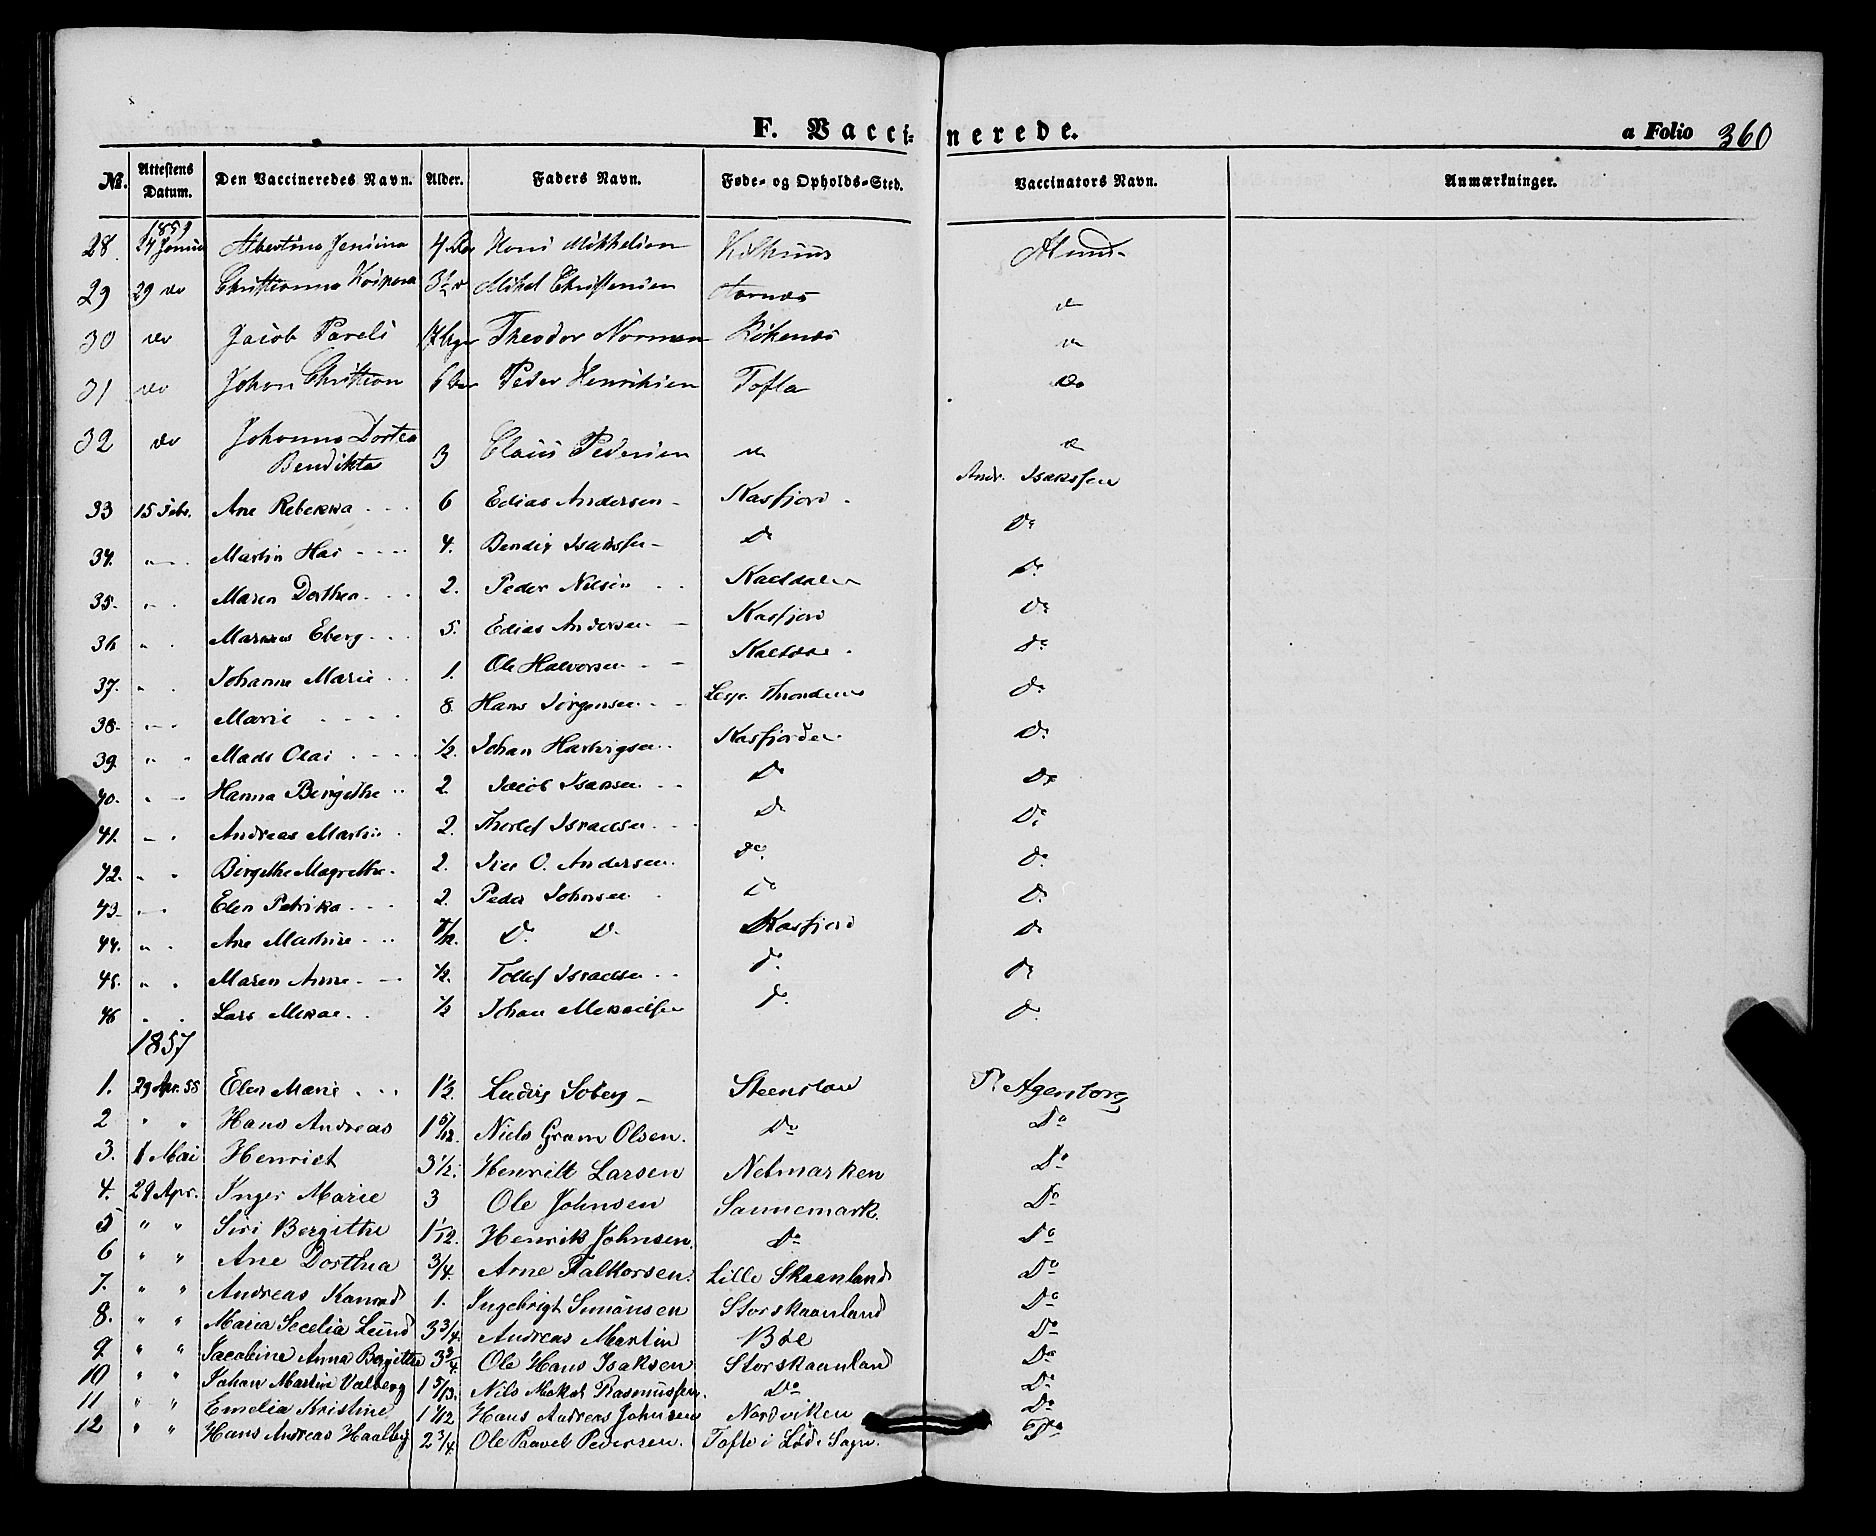 F. Vaccinerede.
a Folio 360
No. Attestens Datum. Den Vaccineredes Navn. Alder. Faders Navn. Føde- og Opholds-Sted. Vaccinators Navn. Anmærkninger.
28. 24 4 Hans Mikkelsen
29 29 do Mikel Christensen
30 do Jacob Pareli Theodor Norman Røkenes
31 do Johan Christian 6 Peder Henriksen Tofta Do
32 do Johanna Dortea
Bendikta 3 Claus Pedersen
Andr. Isakssen
33 15 Febr. Ane Rebekka 6 Edias Andersen Kasfjord
34. " Martin Hai 4. Bendix Isakssen Do Do
35. " Maren Dorthea 2. Peder Nilsen Kaeldalen Do
36 " Markus Eberg 5. Edias Andersen Kasfjord Do
37. " Johanna Marie 1. Ole Halvorsen Do
38. " Marie 8 Hans Jørgensen Throndenes Do
39. " Mads Olai ½. Johan Hartvigsen Kasfjorden Do
40. " Hanna Bergithe 2. Jacob Isaksen Do Do
41. " Andreas Martin 2. Israelsen Do Do
42. " Birgithe Magrethe 2. O. Andersen Do Do
43. " Elen Petrika 2. Peder Johnsen Do Do
44. " Ane Martine Do Do Kasfjord Do
45. " Maren Anne ½. Tollef Israelsen Do Do
46 " Lars Mikal ½ Johan Mikaelsen Do Do
1857
1. 29 Apr. 55 Elen Marie 1½. Ludvig Soberg Agenborg
2 " " Hans Andreas 1 5/12. Niels Gram Olsen. Do Do
3. 1 Mai Henriet 3½. Henrik Larsen Netmarken Do
4. 29 Apr. Inger Marie 3 Ole Johnsen Sannemark. Do
5 " " Siri Bergithe 1 1/12. Henrik Johnsen. Do Do
6 " " Ane Dorthea 3/4. Arne Falkorsen. Lille Skaanland Do
7. " " Andreas Konrad 1. Ingebrigt Simonsen Storskaanland Do
8. " " Maria Secelia Lund 3 3/4. Andreas Martin Böe Do
9 " " Jacobine Anna Bergithe 3 3/4 Ole Hans Isaksen Storskaanland Do
10 " " Johan Martin Valberg 1 5/13. Nils Rasmussen. Do Do
11 " " Emelia Kristine 1 1/12 Hans Andreas Johnsen Nordviken Do
12 " " Hans Andreas Haalberg 2 3/4. Ole Paavel Pedersen. Tofte i Sogn. Do